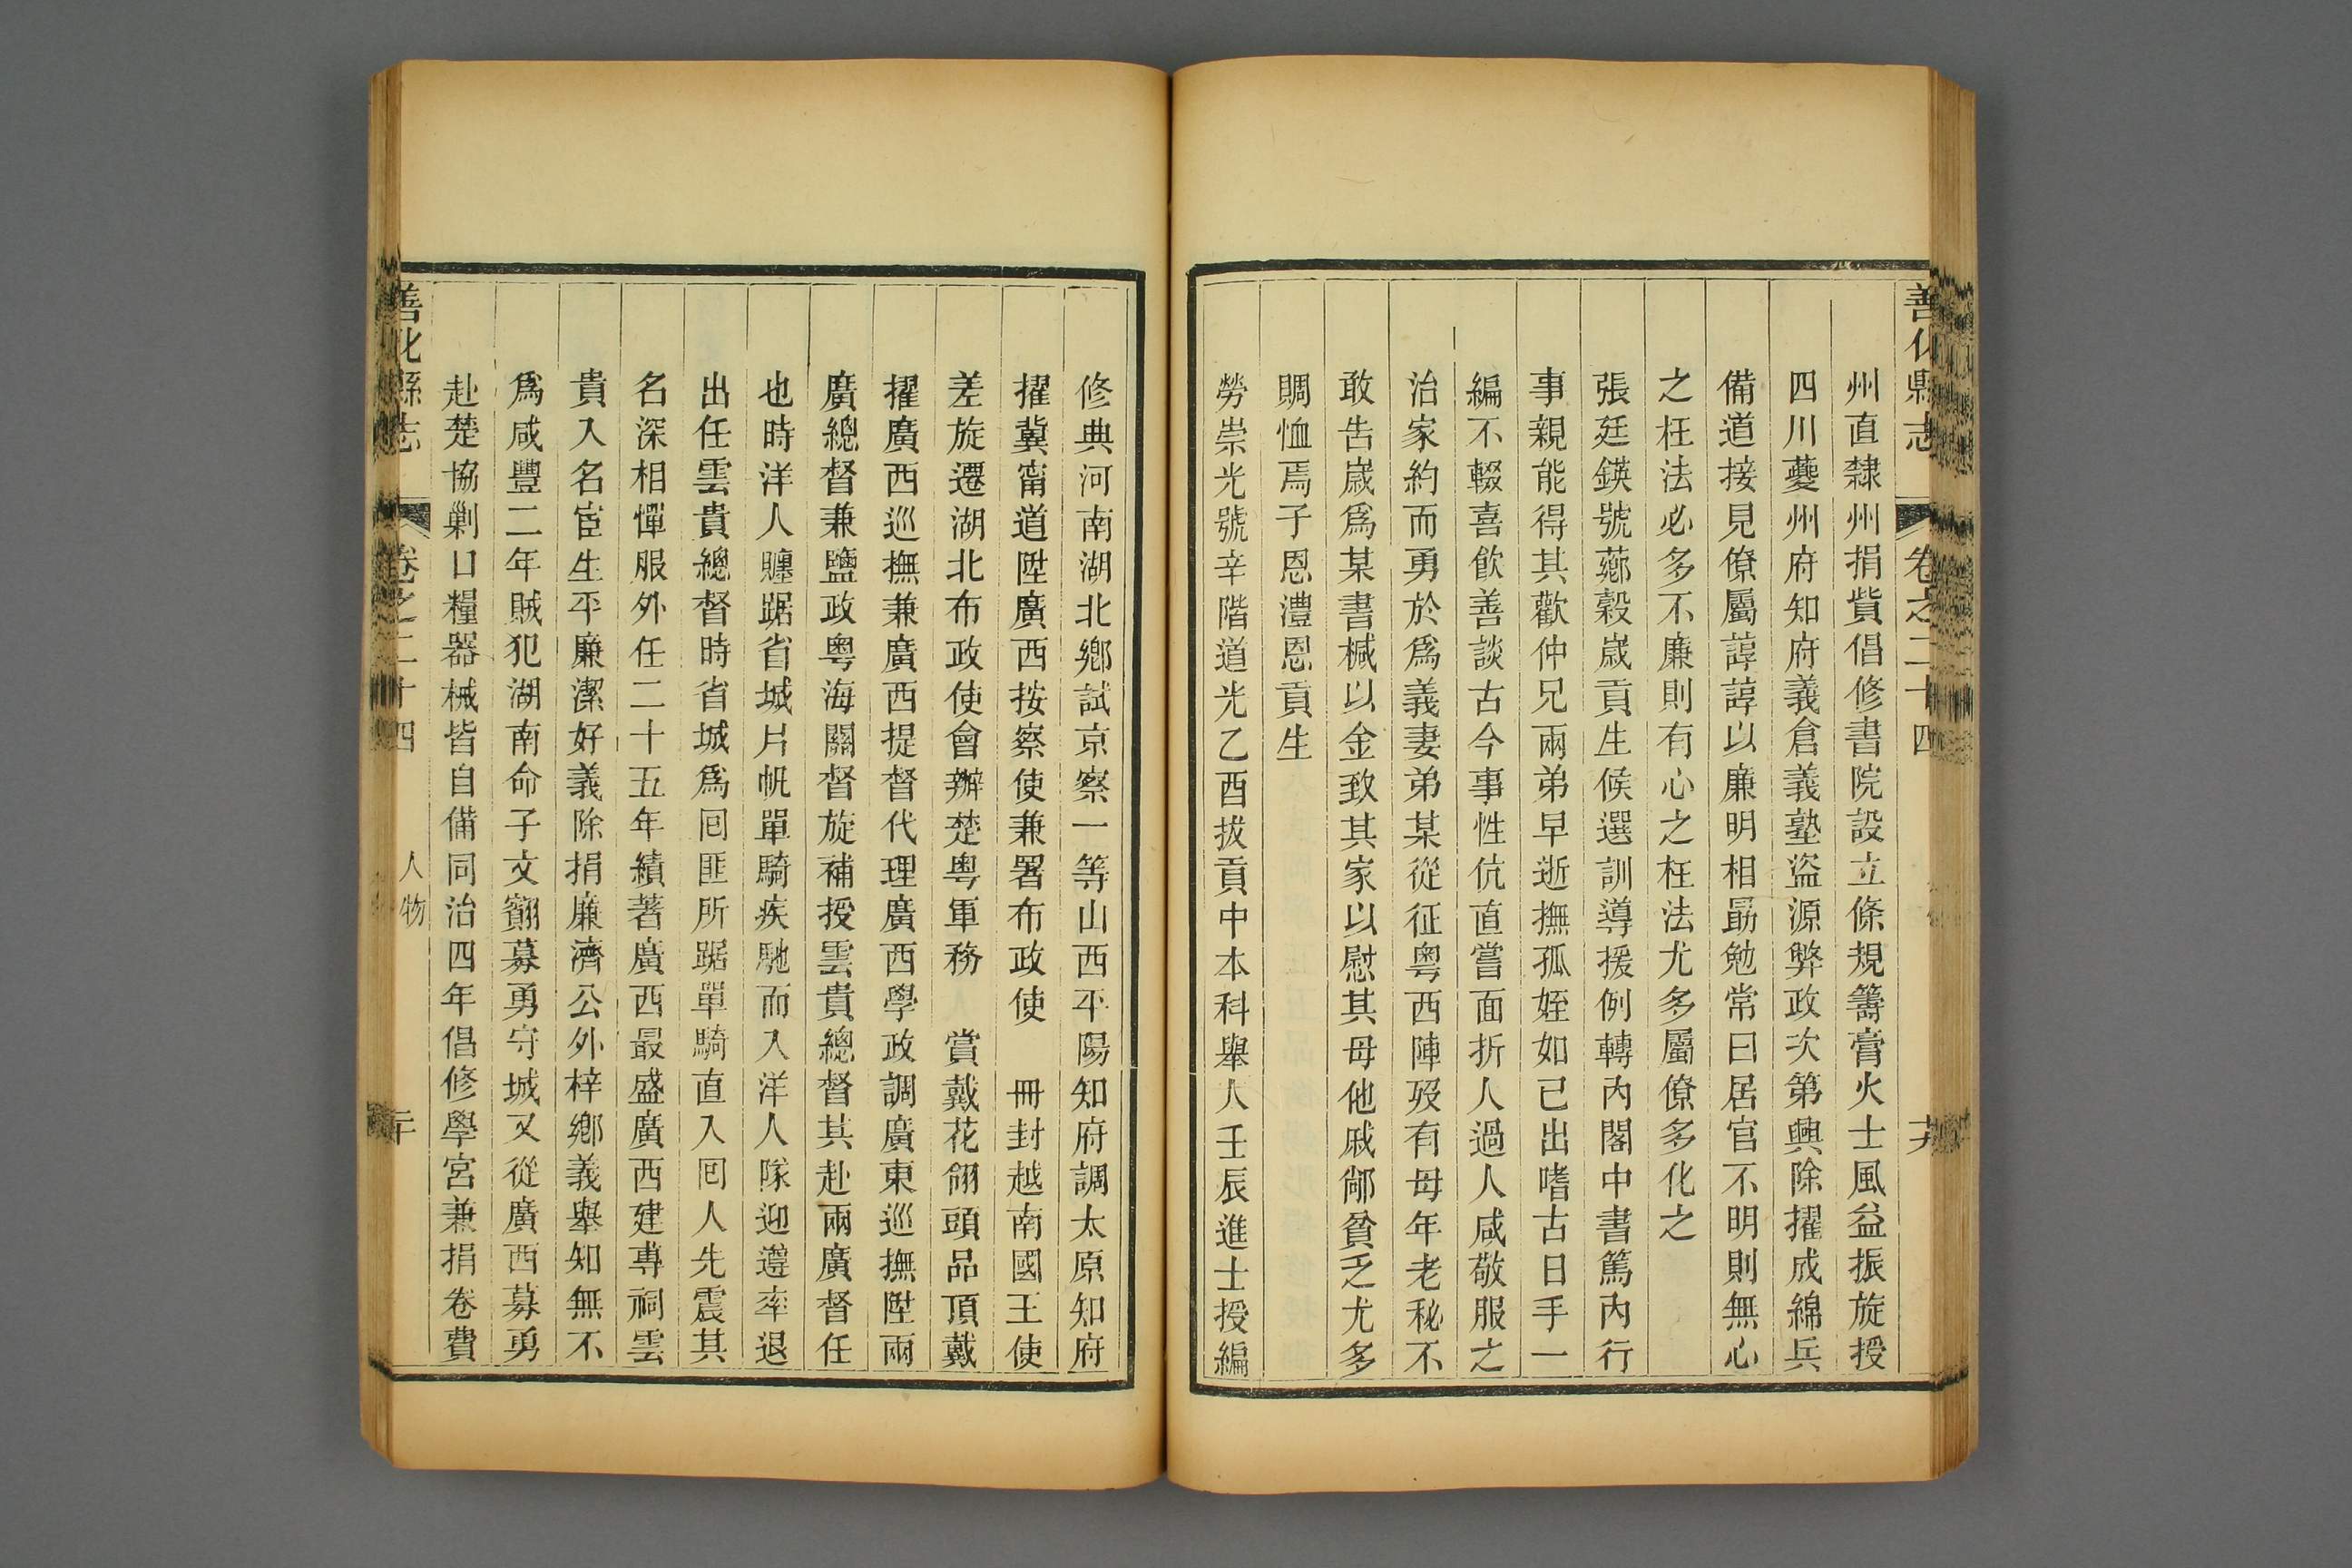 善化縣志 卷之二十四
州直隸州捐貲倡修書院設立條規籌膏火士風益振旋授
四川夔州府知府義倉義塾盜源弊政次第興除擢成綿兵
備道接見僚屬諄諄以廉明相勗勉常曰居官不明則無心
之枉法必多不廉則有心之枉法尤多屬僚多化之
張廷鍈號薌穀歲貢生候選訓導援例轉內閣中書篤內行
事親能得其歡仲兄兩弟早逝撫孤姪如己出嗜古日手一
編不輟喜飲善談古今事性伉直嘗面折人過人咸敬服之
治家約而勇於爲義妻弟某從征粵西陣歿有母年老秘不
敢告歲爲某書椷以金致其家以慰其母他戚鄰貧乏尤多
賙恤焉子恩澧恩貢生
勞崇光號辛階道光乙酉拔貢中本科舉人壬辰進士授編
修典河南湖北鄉試京察一等山西平陽知府調太原知府
擢冀甯道陞廣西按察使兼署布政使 冊封越南國王使
差旋遷湖北布政使會辦楚粵軍務 賞戴花翎頭品頂戴
擢廣西巡撫兼廣西提督代理廣西學政調廣東巡撫陞兩
廣總督兼鹽政粵海關督旋補授雲貴總督其赴兩廣督任
也時洋人踞省城片帆單騎疾馳而入洋人隊迎遵率退
出任雲貴總督時省城爲回匪所踞單騎直入回人先震其
名深相憚服外任二十五年績著廣西最盛廣西建專祠雲
貴入名宦生平廉潔好義除捐廉濟公外梓鄉義舉知無不
爲咸豐二年賊犯湖南命子文翻募勇守城又從廣西募勇
赴楚協剿口糧器械皆自備同治四年倡修學宮兼捐卷費
善化縣志 卷之二十四 人物